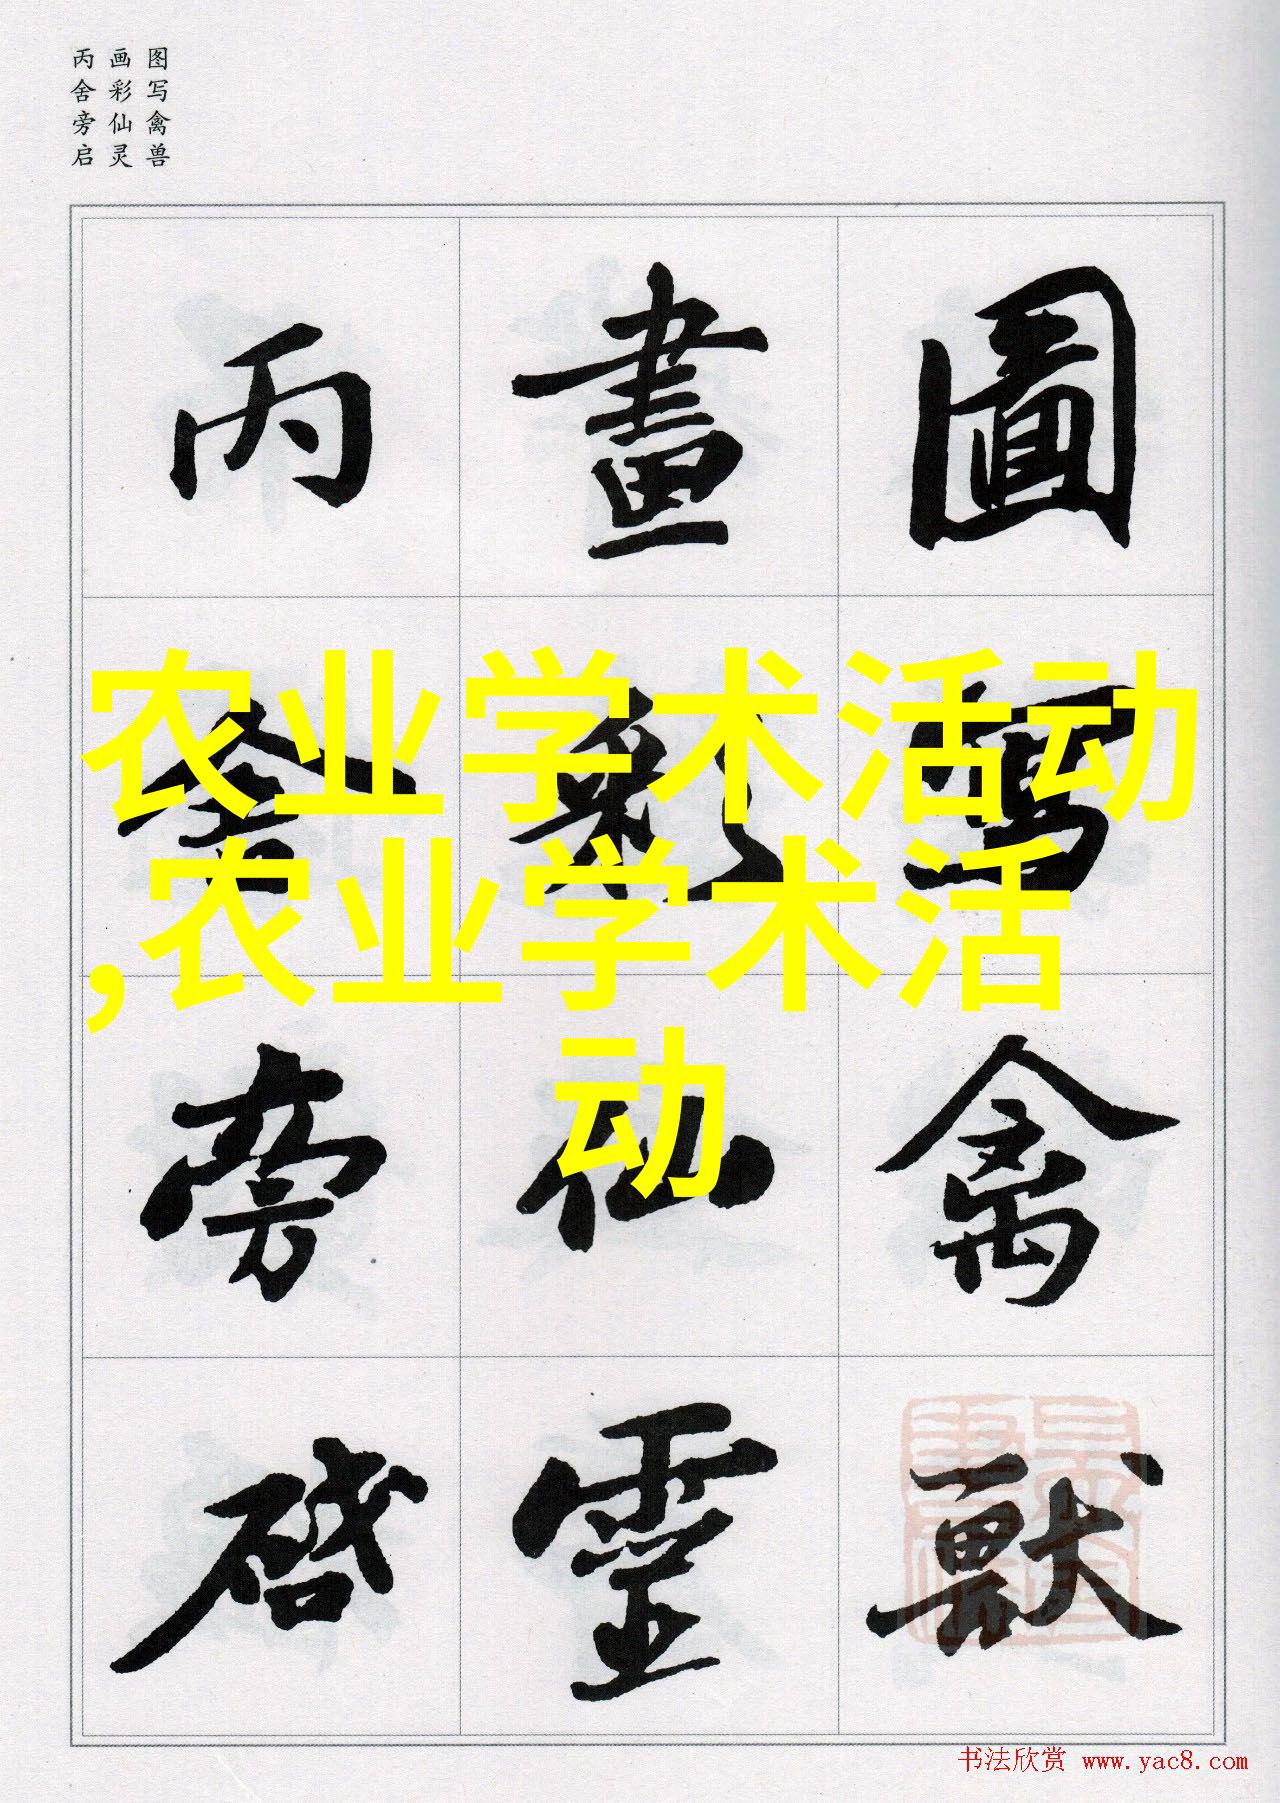 图写禽兽
画彩仙灵
丙舍旁启
圖寫禽獸
畫彩仙靈
丙舍旁啓
农业学术活动
,农业学术活
动
书法欣赏 www.yac8.com